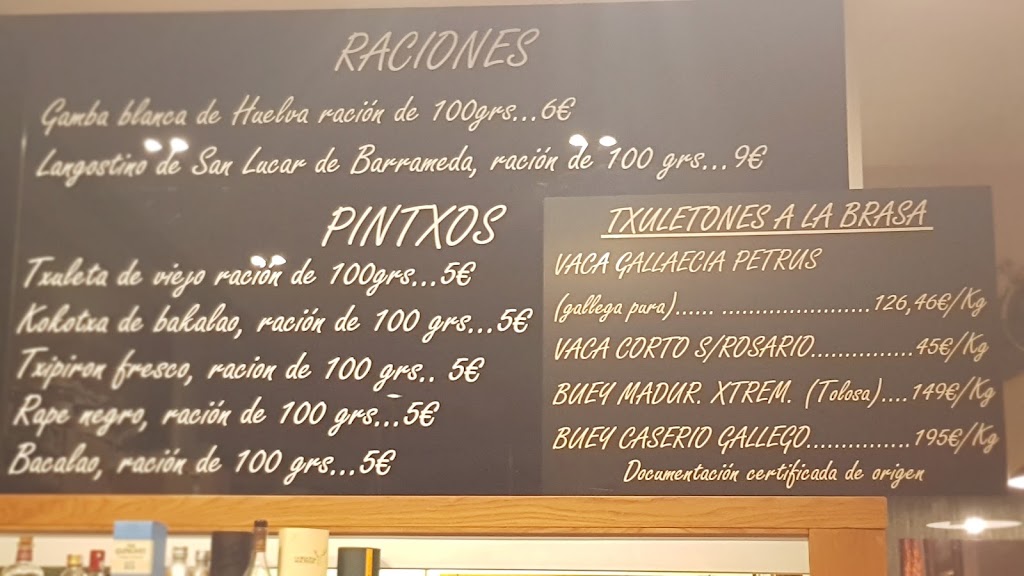 RACIONES
Gamba blanca de Huelva ración de 100grs...6€
Langostino de San Lucar de Barrameda, ración de 100 grs...9€
PINTXOS
Txuleta de viejo ración de 100grs...5€
Kokotxa de bakalao, ración de 100 grs...5€
Txipiron fresco, racion de 100 grs.. 5€
Rape negro, ración de 100 grs...5€
Bacalao, ración de 100 grs...5€
TXULETONES A LA BRASA
VACA GALLAECIA PETRUS
(gallega pura)...... ......................126,46€/Kg
VACA CORTO S/ROSARIO...............45€/Kg
BUEY MADUR. XTREM. (Tolosa)....149€/Kg
BUEY CASERIO GALLEGO...............195€/Kg
Documentación certificada de origen